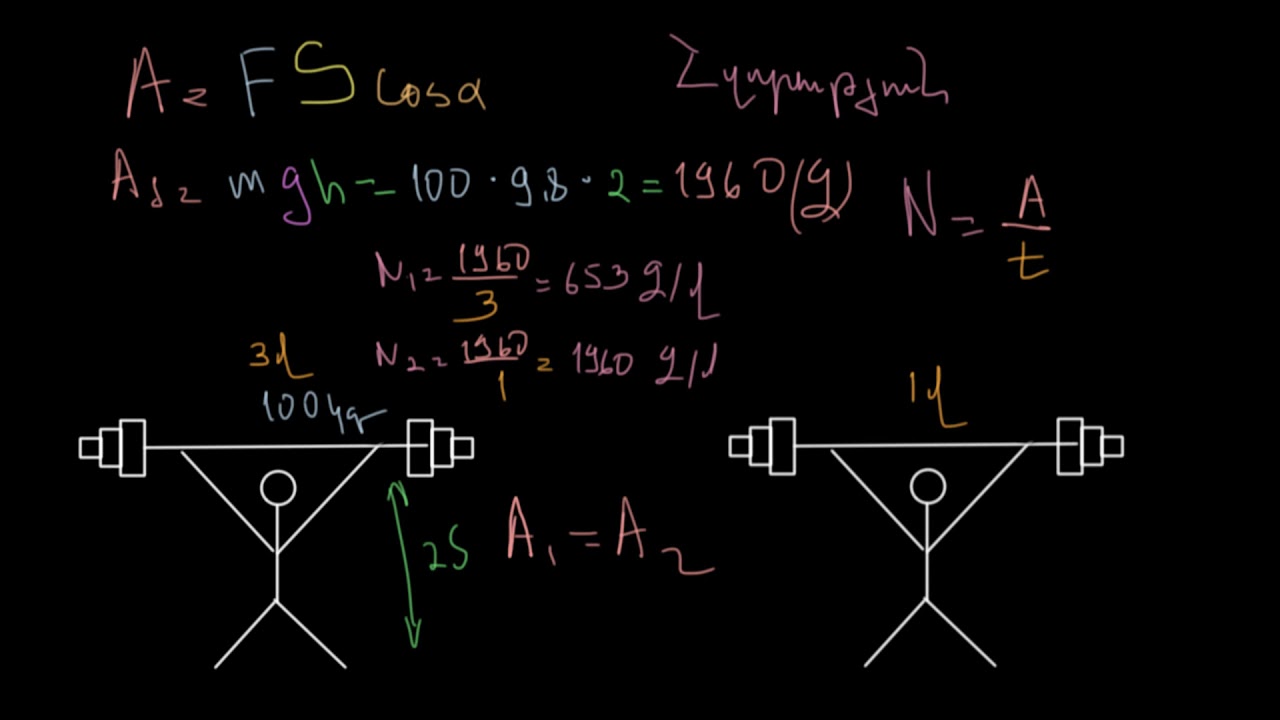 A = FS cosα
Հզորություն
A₁ = mgh = 100 · 9,8 · 2 = 1960 (Ջ)
N = A/t
N₁ = 1960/3 = 653 Ջ/վ
N₂ = 1960/1 = 1960 Ջ/վ
3վ
1վ
100 կգ
A₁ = A₂